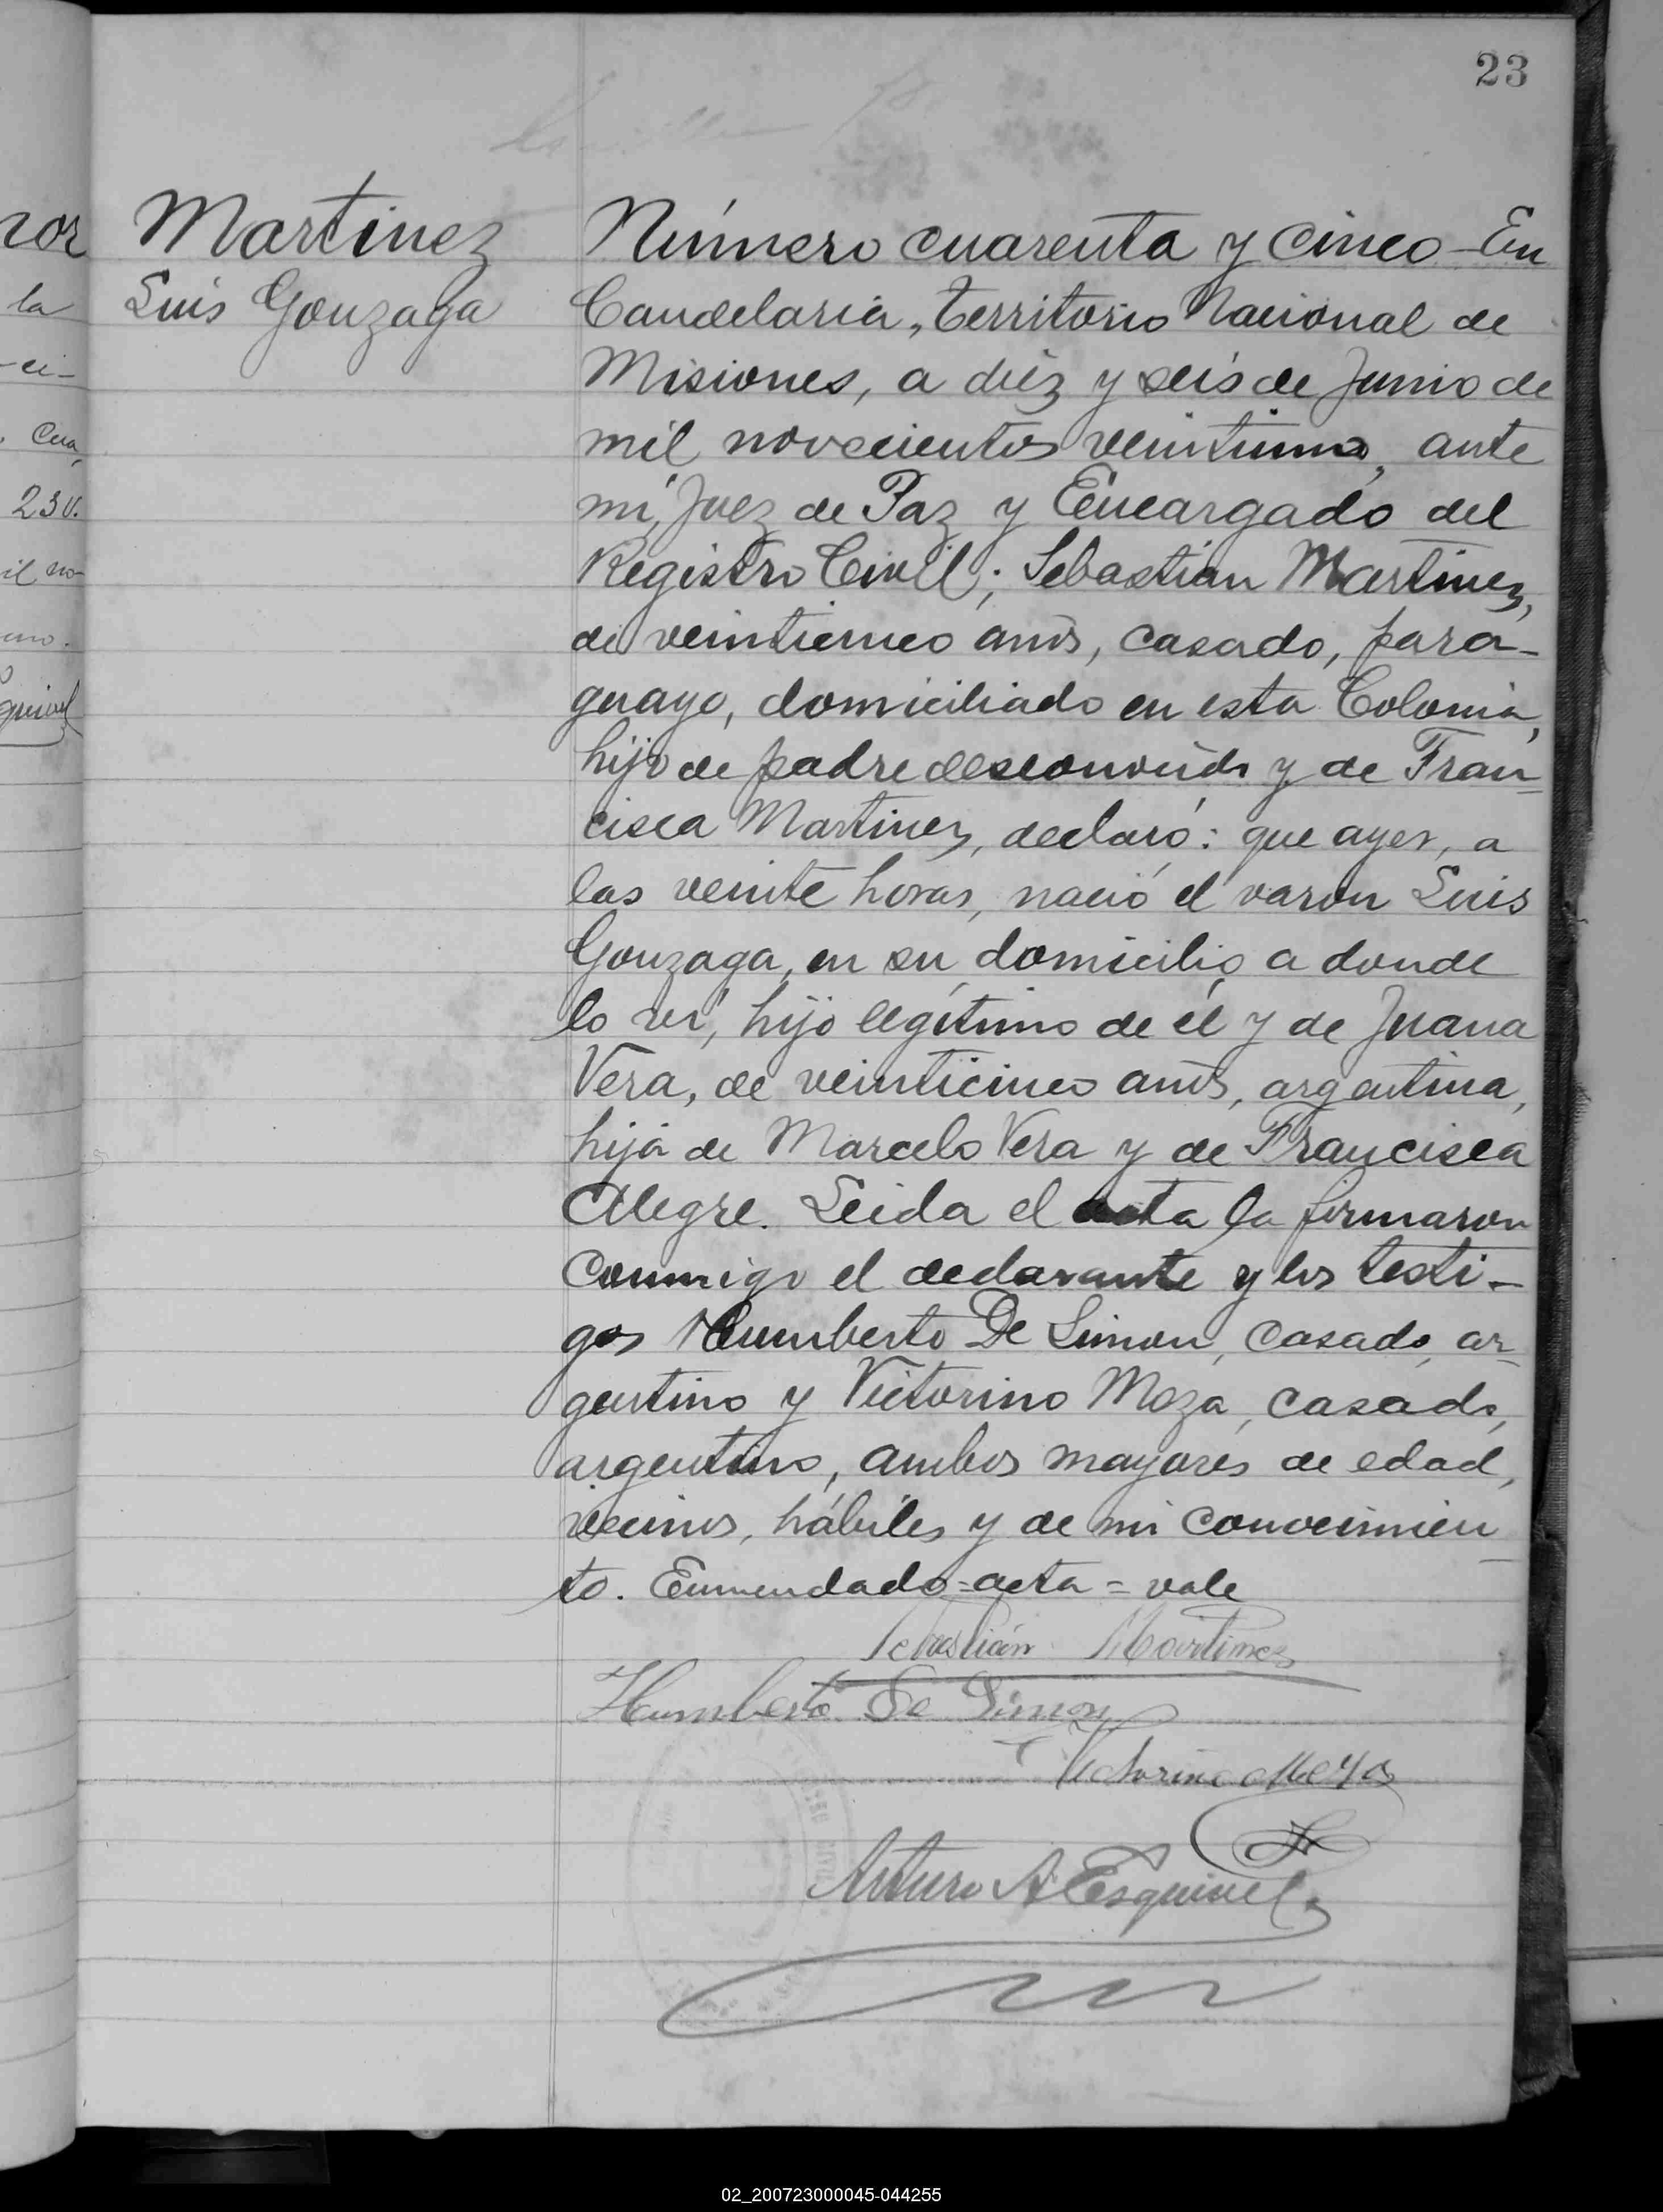 23
Martinez
Luis Gonzaga
Número cuarenta y cinco - En
Candelaria, Territorio Nacional de
Misiones, a diéz y seis de Junio de
mil novecientos veintiuno, ante
mí, Juez de Paz y Encargado del
Registro Civil; Sebastian Martinez,
de veinticinco años, casado, para-
guayo, domiciliado en esta Colonia,
hijo de padre desconocido y de Fran-
cisca Martinez, declaró: que ayer, a
las veinte horas, nació el varon Luis
Gonzaga, en su domicilio a donde
lo ví, hijo legítimo de él y de Juana
Vera, de veinticinco años, argentina,
hija de Marcelo Vera y de Francisca
Alegre. Leida el acta la firmaron
conmigo el declarante y los testi-
gos Humberto De Simon, casado, ar-
gentino y Victorino Meza, casado,
argentino, ambos mayores de edad,
vecinos, hábiles y de mi conocimien
to. Enmendado=acta=vale
Sebastián Martinez
Humberto De Simon
Victorino Meza
Arturo A Esquivel
nor
la
-ci-
Cua
23 v.
il no-
uno.
quivel
02_200723000045-044255